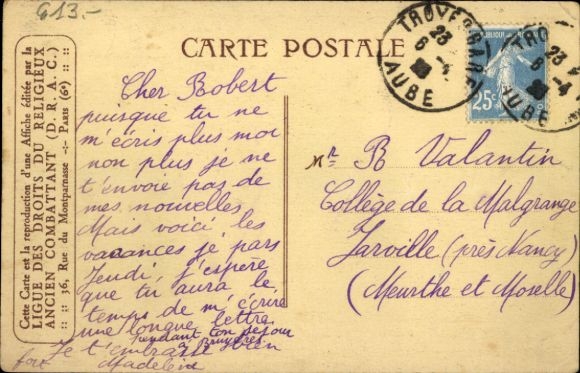 613.-
CARTE POSTALE
Cette Carte est la reproduction d'une Affiche éditée par la
LIGUE DES DROITS DU RELIGIEUX
ANCIEN COMBATTANT (D. R. A. C.)
:: :: 36, Rue du Montparnasse -:- PARIS (6e) :: ::
TROYES GARE
23
6
-4
AUBE
25c
TRO
23
6
-4
UBE
Cher Robert
puisque tu ne
m'écris plus moi
non plus je ne
t'envoie pas de
mes nouvelles
Mais voici les
vacances je pars
Jeudi, j'espère
que tu aura le
temps de m'écrire
une longue lettre
pendant ton séjour
à Bruyères
Je t'embrasse bien
fort Madeleine
Mr R Valantin
Collège de la Malgrange
Jarville (près Nancy)
(Meurthe et Moselle)